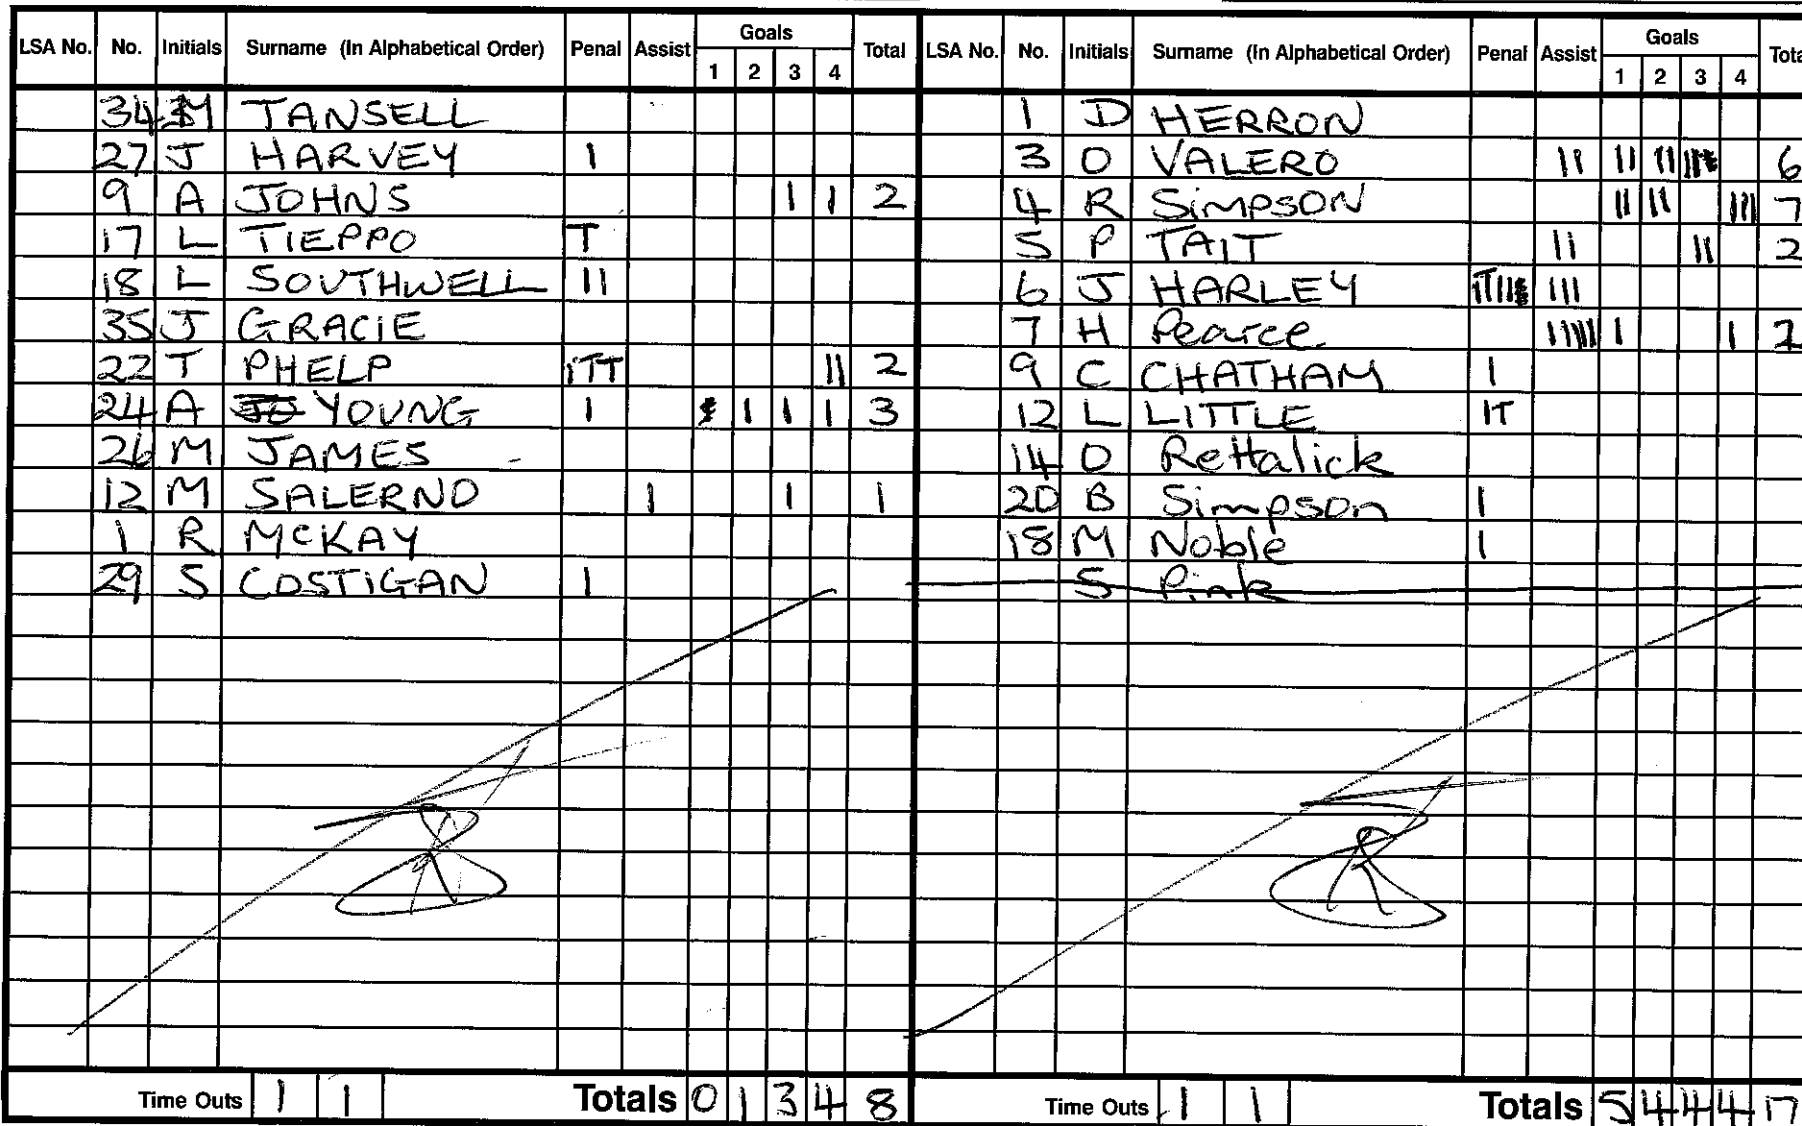 LSA No. No. Initials Surname (In Alphabetical Order) Penal Assist Goals 1 2 3 4 Total
34 M TANSELL
27 J HARVEY I
9 A JOHNS I I 2
17 L TIEPPO T
18 L SOUTHWELL II
35 J GRACIE
22 T PHELP ITT II 2
24 A YOUNG I I I I 3
26 M JAMES
12 M SALERNO I I 1
1 R McKAY
29 S COSTIGAN I
Time Outs 1 1 Totals 0 1 3 4 8
LSA No. No. Initials Surname (In Alphabetical Order) Penal Assist Goals 1 2 3 4 Tota
1 D HERRON
3 O VALERO II II II 6
4 R SiMPSON II II III 7
5 P TAIT II II 2
6 J HARLEY III
7 H Pearce IIIII I I 2
9 C CHATHAM I
12 L LITTLE IT
14 O Rettalick
20 B Simpson I
18 M Noble I
S Pink
Time Outs 1 1 Totals 5 4 4 4 17